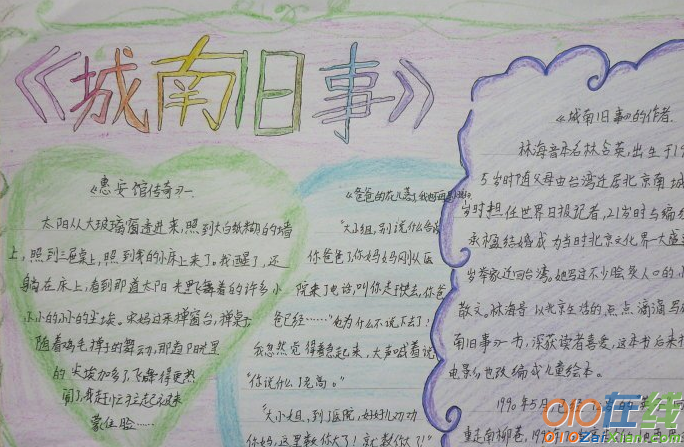 《城南旧事》
《惠安馆传奇》一
太阳从大玻璃窗透进来,照到大白纸糊的墙
上,照到三屉桌上,照到我的小床上来了。我醒了,还
躺在床上,看到那道太阳光里飞舞着的许多小
小的,小的尘埃。宋妈过来掸窗台,掸桌子
随着鸡毛掸子的舞动,那道阳光里
的尘埃加多了,飞舞得更热
闹了,我赶忙拉起被来
蒙住脸……
《爸爸的花儿落了
"大小姐,别说什么告诉
你爸爸了,你妈妈刚从医
院来了电话,叫你赶快去,你爸
爸已经……"他为什么不说下去了!
我忽然觉得着急起来,大声喊着说
"你说什么!老高。"
"大小姐,到了医院,好好儿劝劝
你妈,这里就数你大了!就数你大了!"
《城南旧事》的作者
林海音本名林含英,出生于19
5岁时随父母由台湾迁居北京南城
岁时担任世界日报记者,21岁时与编
承楹结婚成为当时北京文化界一大盛
岁举家迁回台湾。她写过不少脍炙人口的小
散文。林海音以北京生活的点点滴滴写
南旧事》一书,深获读者喜爱,这本书后来
电影,也改编成儿童绘本。
1990年5月,
重走南柳巷,
010在线
ZaiXian.Com